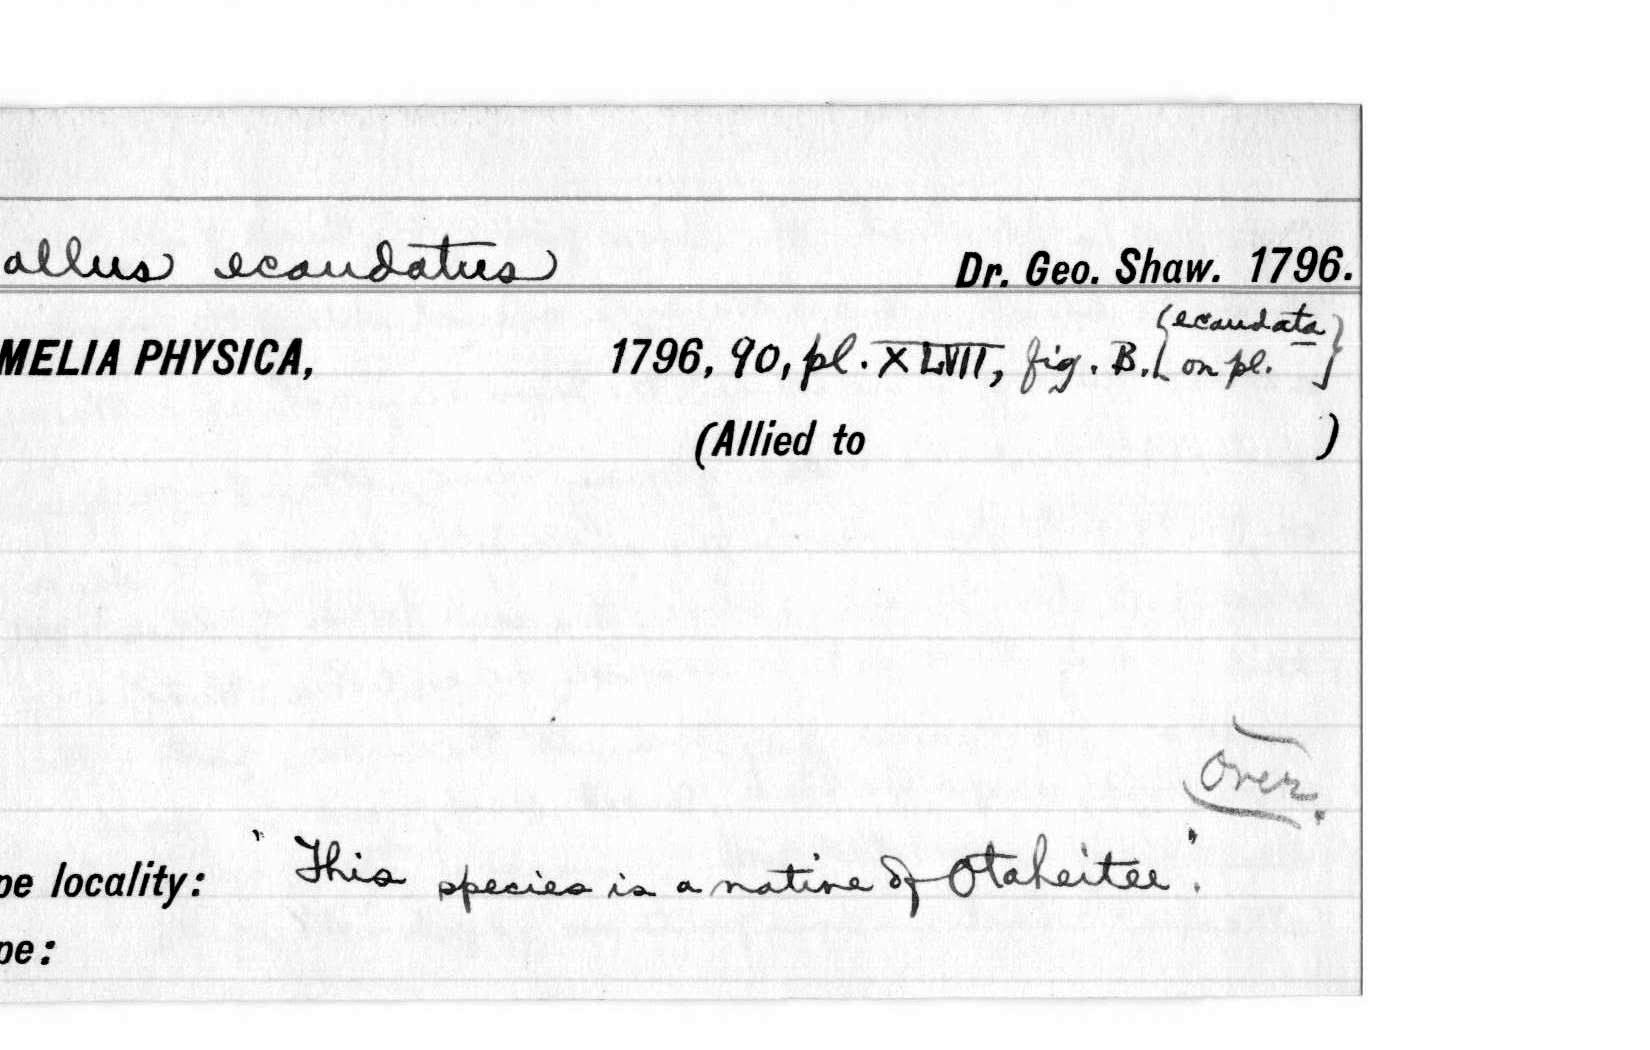 allus ecaudatus Dr. Geo. Shaw. 1796.
MELIA PHYSICA, 1796, 90, pl. XLVII, fig. B. {ecaudata on pl.}
(Allied to )
Over.
pe locality: "This species is a native of Otaheitee".
pe: